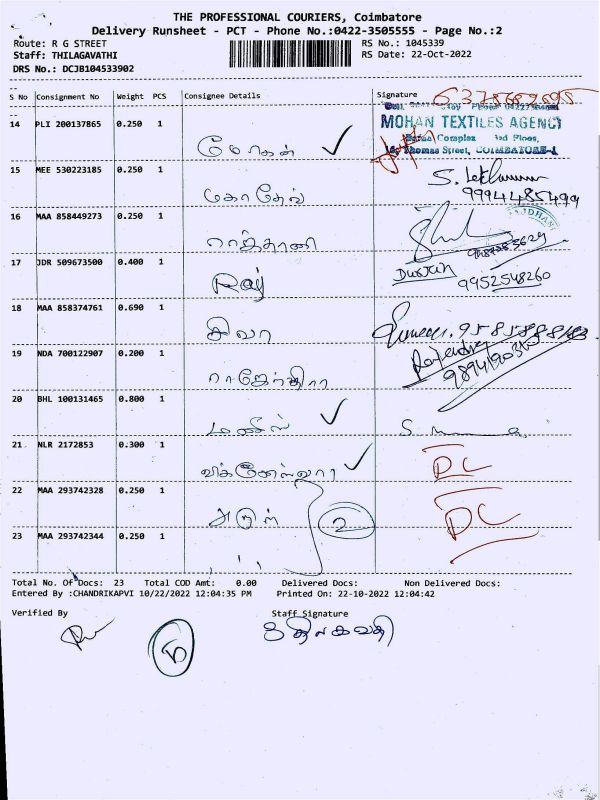 THE PROFESSIONAL COURIERS, Coimbatore
Delivery Runsheet - PCT - Phone No.:0422-3505555 - Page No.:2
Route: R G STREET
RS No.: 1045339
Staff: THILAGAVATHI
RS Date: 22-Oct-2022
DRS No.: DCJB104533902
S No Consignment No Weight PCS Consignee Details Signature
MOHAN TEXTILES AGENCY
Complex
Thomas Street, COIMBATORE-1
14 PLI 200137865 0.250 1
மோகன்
15 MEE 530223185 0.250 1
9994485499
16 MAA 858449273 0.250 1
ராஜ்தானி
17 JDR 509673500 0.400 1
Raj
9952548260
18 MAA 858374761 0.690 1
சிவா
19 NDA 700122907 0.200 1
20 BHL 100131465 0.800 1
21 NLR 2172853 0.300 1
DC
22 MAA 293742328 0.250 1
அருள்
2
DC
23 MAA 293742344 0.250 1
Total No. Of Docs: 23 Total COD Amt: 0.00 Delivered Docs: Non Delivered Docs:
Entered By :CHANDRIKAPVI 10/22/2022 12:04:35 PM Printed On: 22-10-2022 12:04:42
Verified By Staff Signature
திலகவதி